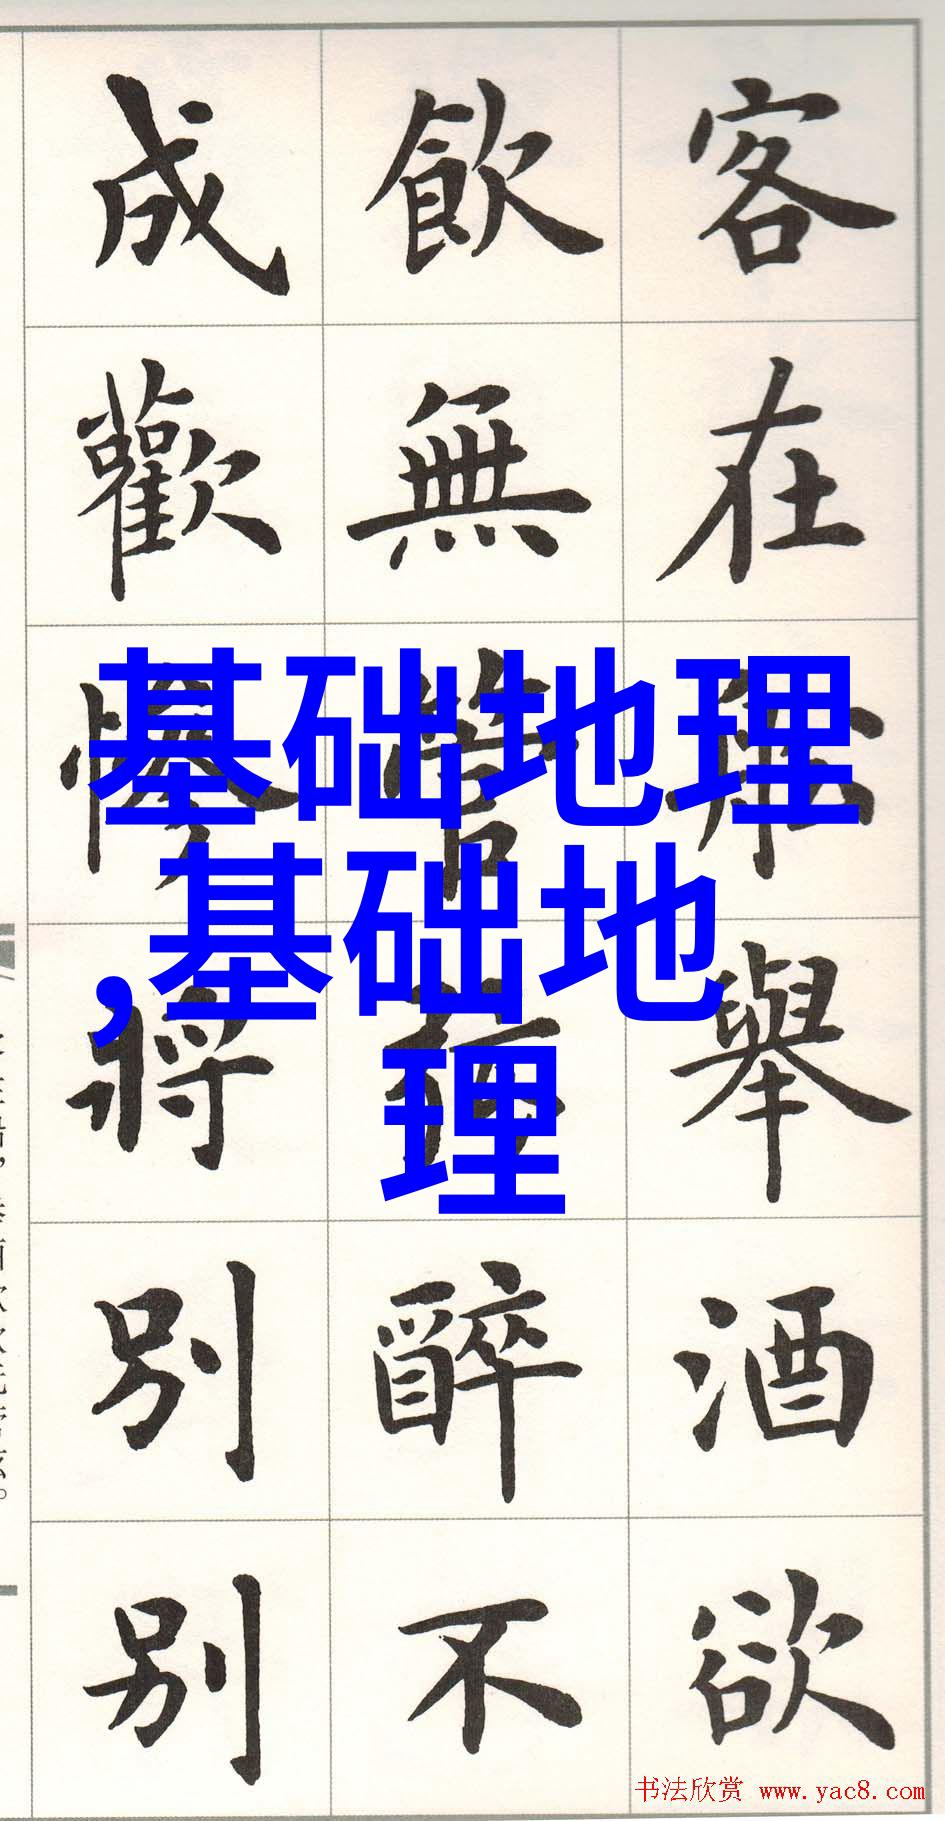 客在船舉酒欲
飲無管醉不
成歡慘將別別
基础地理
,基础地
理
书法欣赏 www.yac8.com